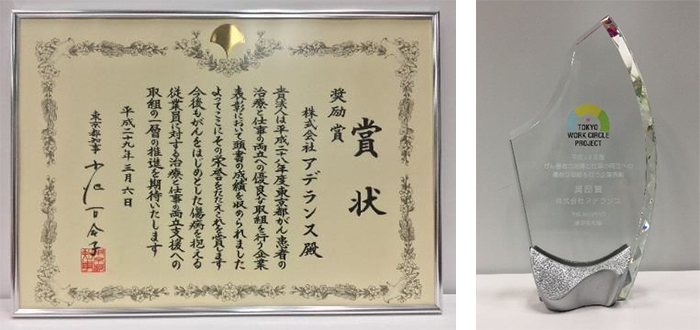 賞状
奨励賞
株式会社 アデランス殿
貴社は平成二十八年度東京都がん患者の
治療と仕事の両立への優良な取組を行う企業
表彰において頭書の成績を収められました
よってここにその栄誉をたたえこれを賞します
今後もがんをはじめとした傷病を抱える
従業員に対する治療と仕事の両立支援への
取組の一層の推進を期待いたします
平成二十九年三月六日
東京都知事 小池百合子
TOKYO
WORK CIRCLE
PROJECT
がん患者の治療と仕事の両立への
優良な取組を行う企業表彰
奨励賞
株式会社アデランス